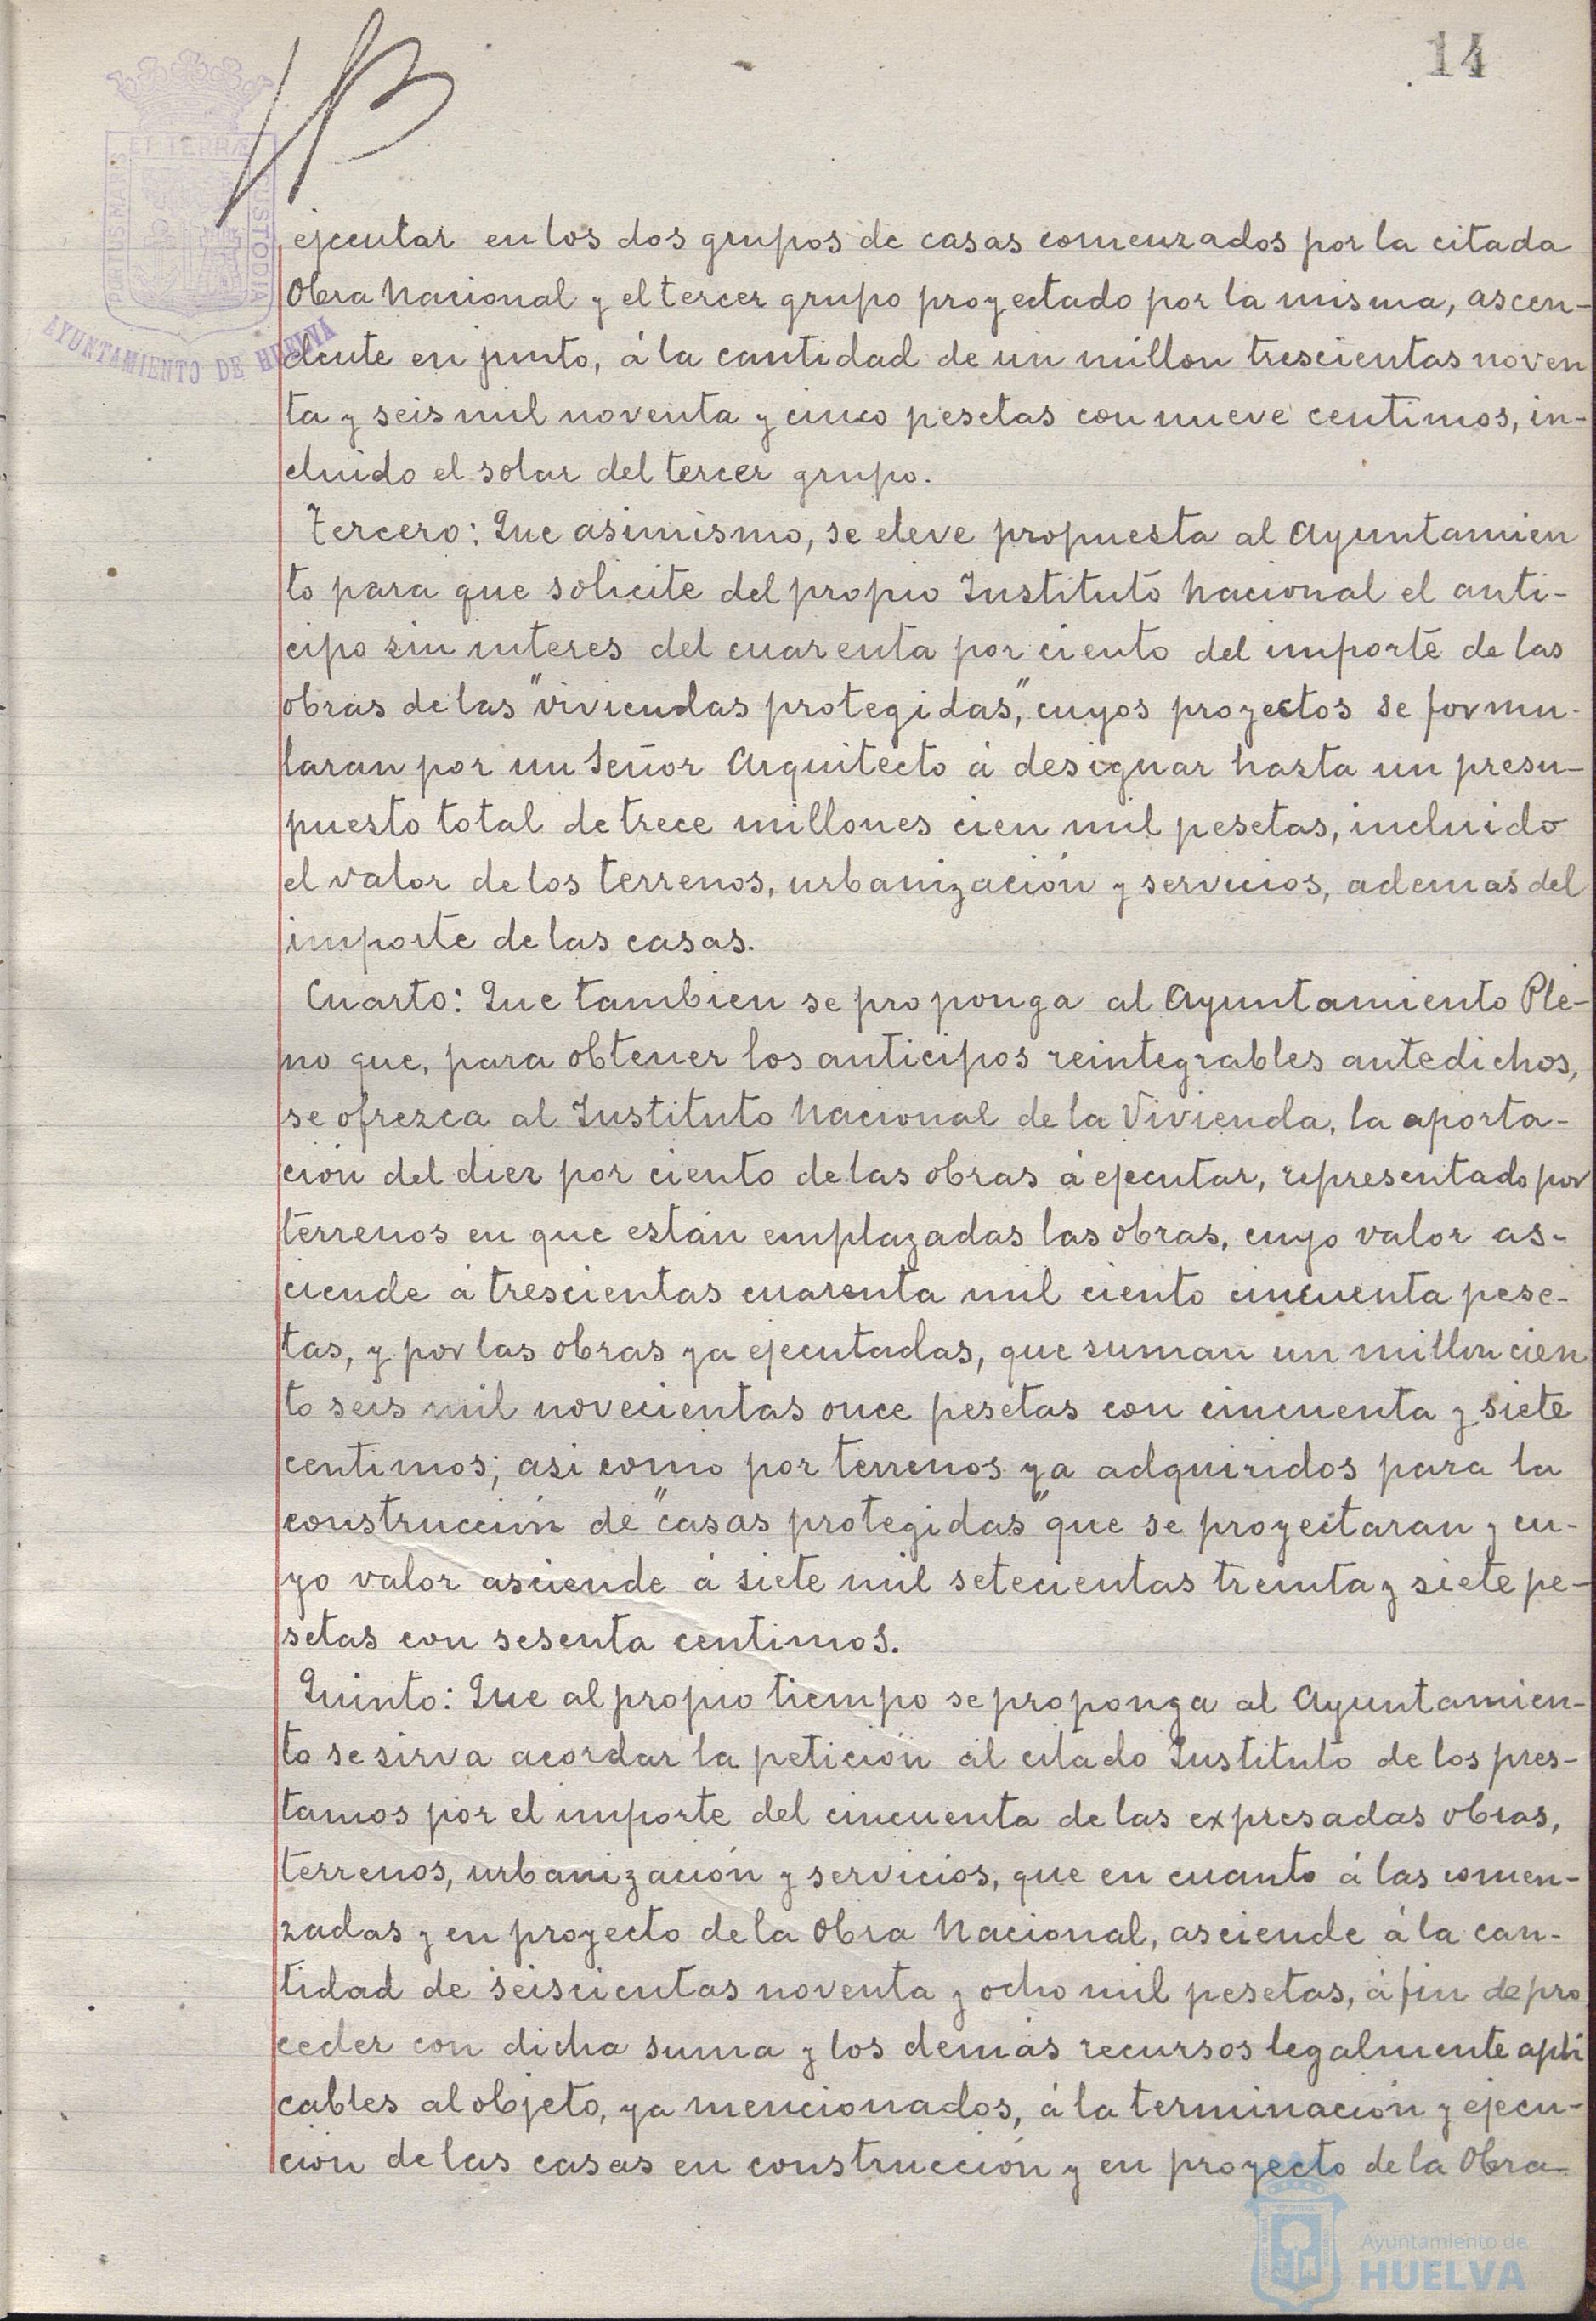 14
ET TERRÆ
PORTUS MARIS
CUSTODIA
AYUNTAMIENTO DE HUELVA
ejecutar en los dos grupos de casas comenzados por la citada
Obra Nacional y el tercer grupo proyectado por la misma, ascen-
dente en junto, á la cantidad de un millon trescientas noven
ta y seis mil noventa y cinco pesetas con nueve centimos, in-
cluido el solar del tercer grupo.
Tercero: Que asimismo, se eleve propuesta al Ayuntamien
to para que solicite del propio Instituto Nacional el anti-
cipo sin interes del cuarenta por ciento del importe de las
obras de las "viviendas protegidas", cuyos proyectos se formu-
laran por un Señor Arquitecto á designar hasta un presu-
puesto total de trece millones cien mil pesetas, incluido
el valor de los terrenos, urbanización y servicios, ademas del
importe de las casas.
Cuarto: Que tambien se proponga al Ayuntamiento Ple-
no que, para obtener los anticipos reintegrables antedichos,
se ofrezca al Instituto Nacional de la Vivienda, la aporta-
ción del diez por ciento de las obras á ejecutar, representado por
terrenos en que están emplazadas las obras, cuyo valor as-
ciende á trescientas cuarenta mil ciento cincuenta pese-
tas, y por las obras ya ejecutadas, que suman un millon cien
to seis mil novecientas once pesetas con cincuenta y siete
centimos; asi como por terrenos ya adquiridos para la
construcción de "casas protegidas" que se proyectaran y cu-
yo valor asciende á siete mil setecientas treinta y siete pe-
setas con sesenta centimos.
Quinto: Que al propio tiempo se proponga al Ayuntamien-
to se sirva acordar la petición al citado Instituto de los pres-
tamos por el importe del cincuenta de las expresadas obras,
terrenos, urbanización y servicios, que en cuanto á las comen-
zadas y en proyecto de la Obra Nacional, asciende á la can-
tidad de seiscientas noventa y ocho mil pesetas, á fin de pro
ceder con dicha suma y los demás recursos legalmente apli
cables al objeto, ya mencionados, á la terminación y ejecu-
ción de las casas en construcción y en proyecto de la Obra
Ayuntamiento de
HUELVA